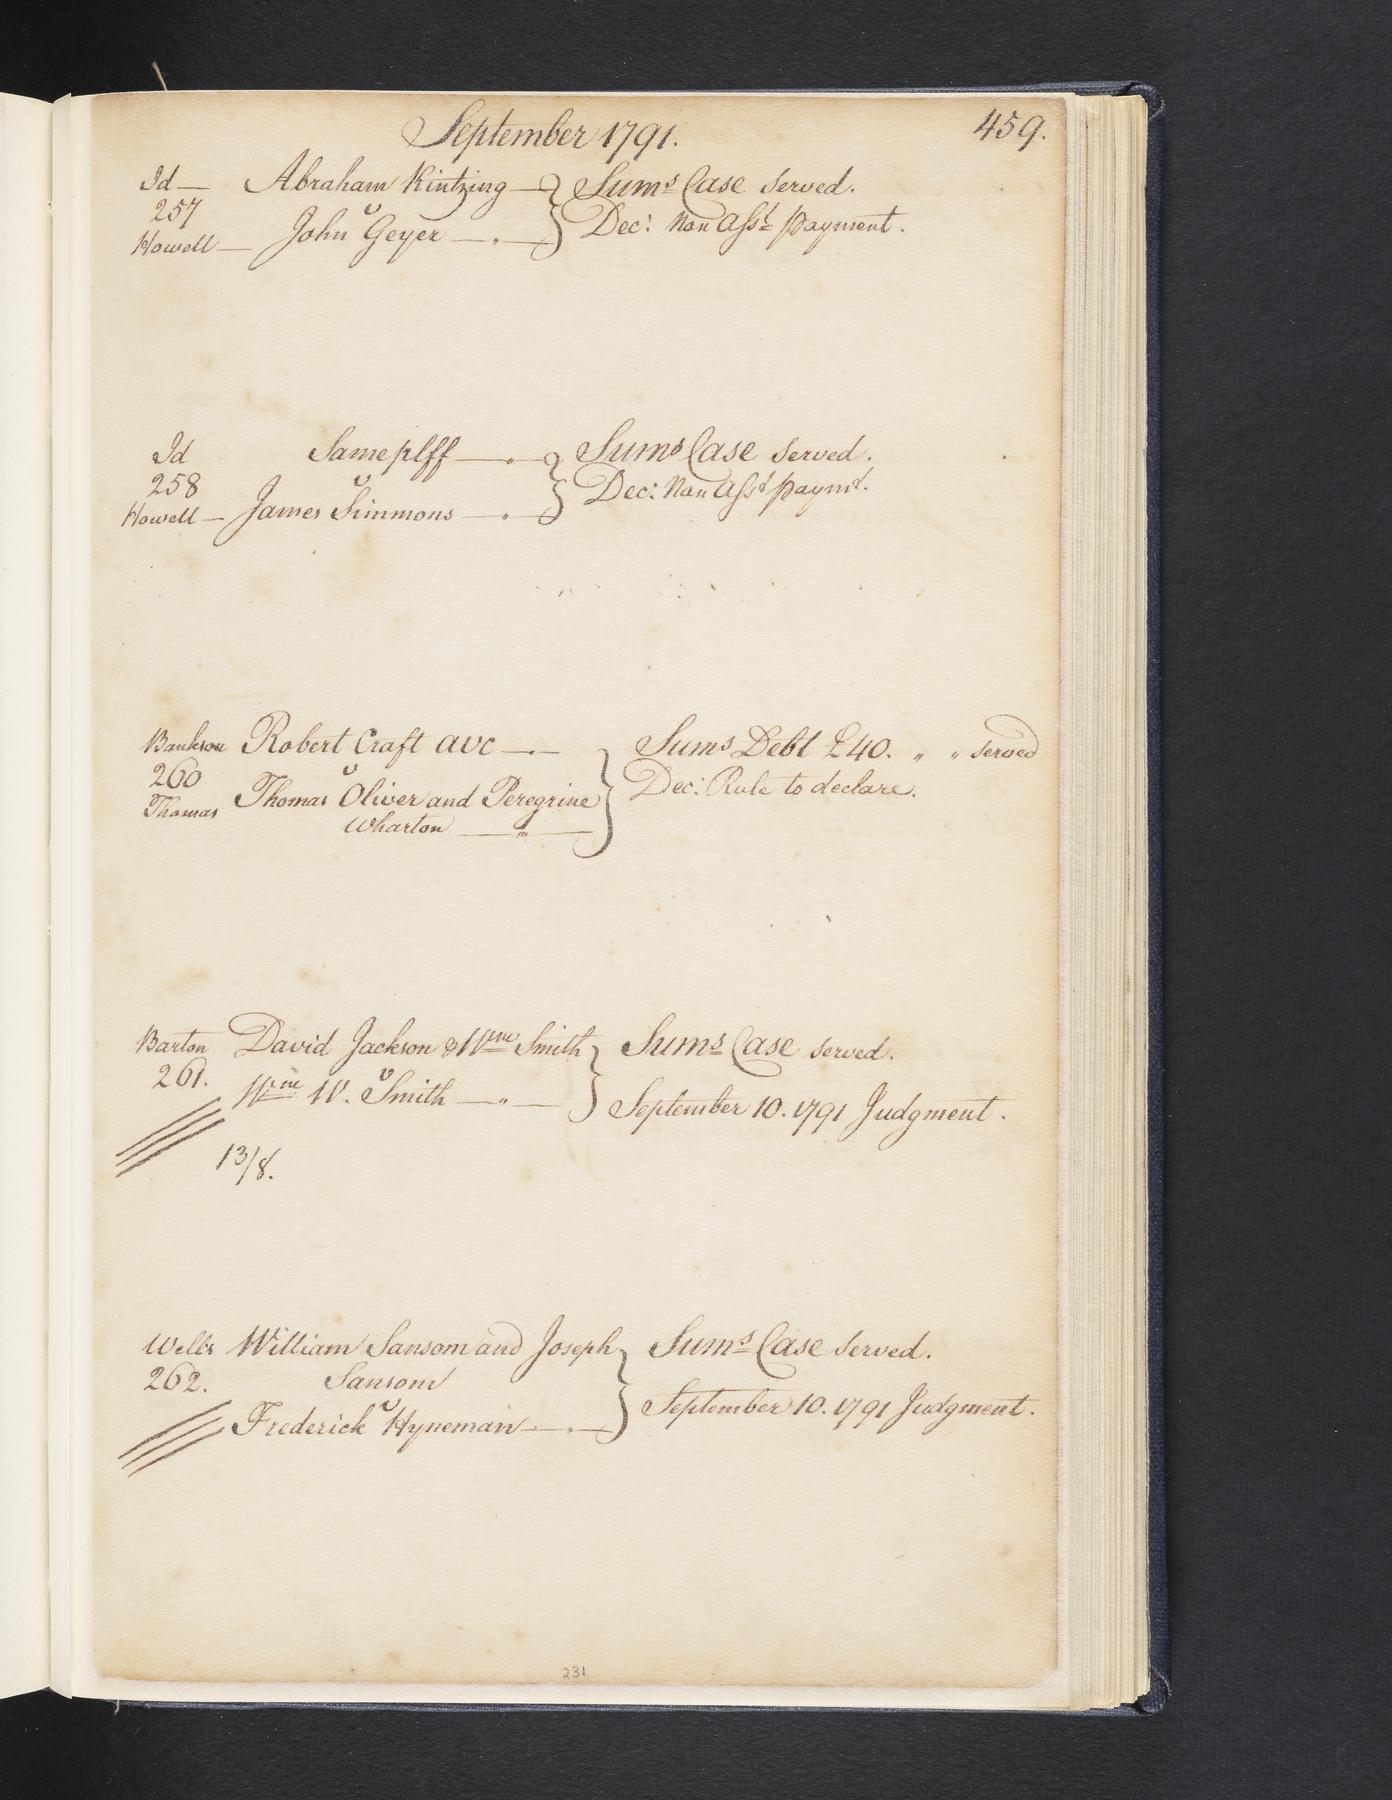 September 1791.
459.
Id — Abraham Kintzing — Sums Case served.
257 v Dec: Non Asst payment.
Howell — John Geyer —
Id Same plff — Sums Case served.
258 v Dec: Non Asst paymt.
Howell — James Simmons —
Bankson Robert Craft avc — Sums Debt £40. " " served
260 v Dec: Rule to declare.
Thomas Thomas Oliver and Peregrine
Wharton — " —
Barton David Jackson & Wm Smith Sums Case served.
261. v
Wm W. Smith — " — September 10. 1791 Judgment.
13/8.
Wells William Sansom and Joseph Sums Case served.
262. Sansom
v September 10. 1791 Judgment.
Frederick Hyneman —
231